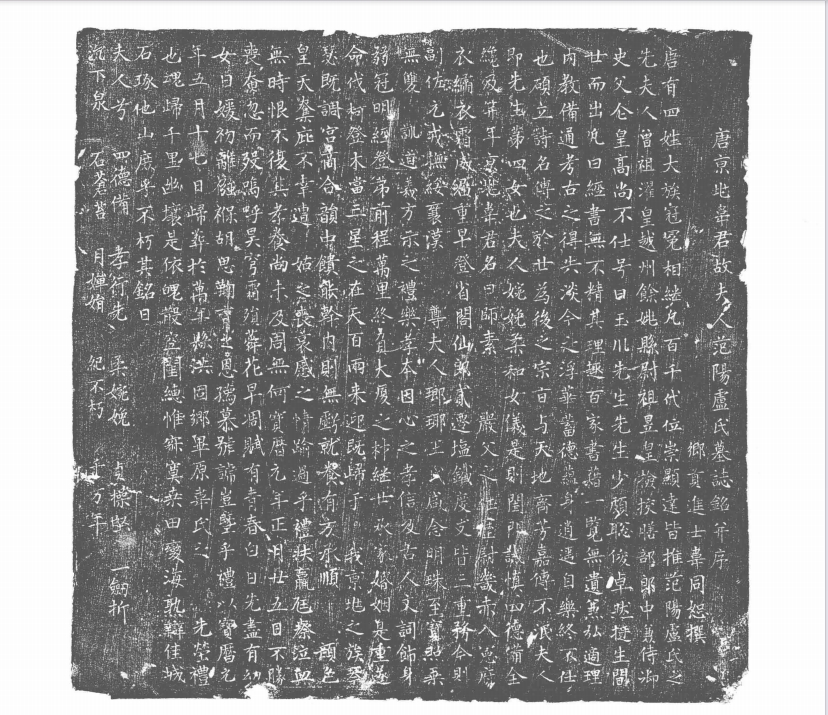 唐京兆韋君故夫人范陽盧氏墓誌銘并序
鄉貢進士韋同恕撰
唐有四姓大族冠冕相継凡百千代位崇顯達皆推范陽盧氏之
先夫人曾祖濯皇越州餘姚縣尉祖昱皇撿挍膳部郎中兼侍御
史父仝皇高尚不仕号曰玉川先生先生少頗聡俊卓然挺生間
世而出凡曰經書無不精其理趣百家書籍一覧無遺兼弘適理
内教備通考古之得失淡今之浮華蓄德藏身逍遥自樂終不仕
也頎立詩名傳之於世為後之宗旨与天地齊芳嘉傳不泯夫人
即先生苐四女也夫人婉娩柔和女儀是則閨門謙慎四德備全
纔及笄年京兆韋君名曰師素 嚴父之任歷尉畿赤入憲府
衣繡衣霜威獨重早登省閣仙郎貳遷塩鐵度支皆三重務今則
副佐元戎撫綏襄漢 尊夫人瑯瑘王氏咸念明珠至寶照乗
無雙 訓道義方示之禮樂孝本因心之孝信及古人文詞飾身
弱冠明經登第前程萬里終負大廈之材継世於家婚姻是重遂
命伐柯登木當三星之在天百兩来迎既歸于 我京兆之族琴
瑟既調宮商合韻中饋能幹内則無虧就飬有方承順 顔色
皇天奪庇不幸遭 姑之喪哀慼之情踰過乎禮秩羸尫瘵泣血
無時恨不後其孝養尚未及周無何寶曆元年正月廿五日不勝
喪奄忽而歿號呼昊穹霜殞蕣花早凋賦有青春白日先盡有幼
女曰媛初離襁褓胡思鞠育之恩孺慕號謕豈墾乎禮以寶曆元
年五月十七日歸葬於萬年縣洪固鄉畢原韋氏之 先塋禮
也魂歸千里幽壤是依魄散空閨繐帷寂寞桑田變海孰辯佳城
石琢他山庶乎不朽其銘曰
夫人兮 四德備 孝行先 柔婉娩 貞操堅 一劒折
沉下泉 石蒼苔 月嬋娟 紀不朽 千万年